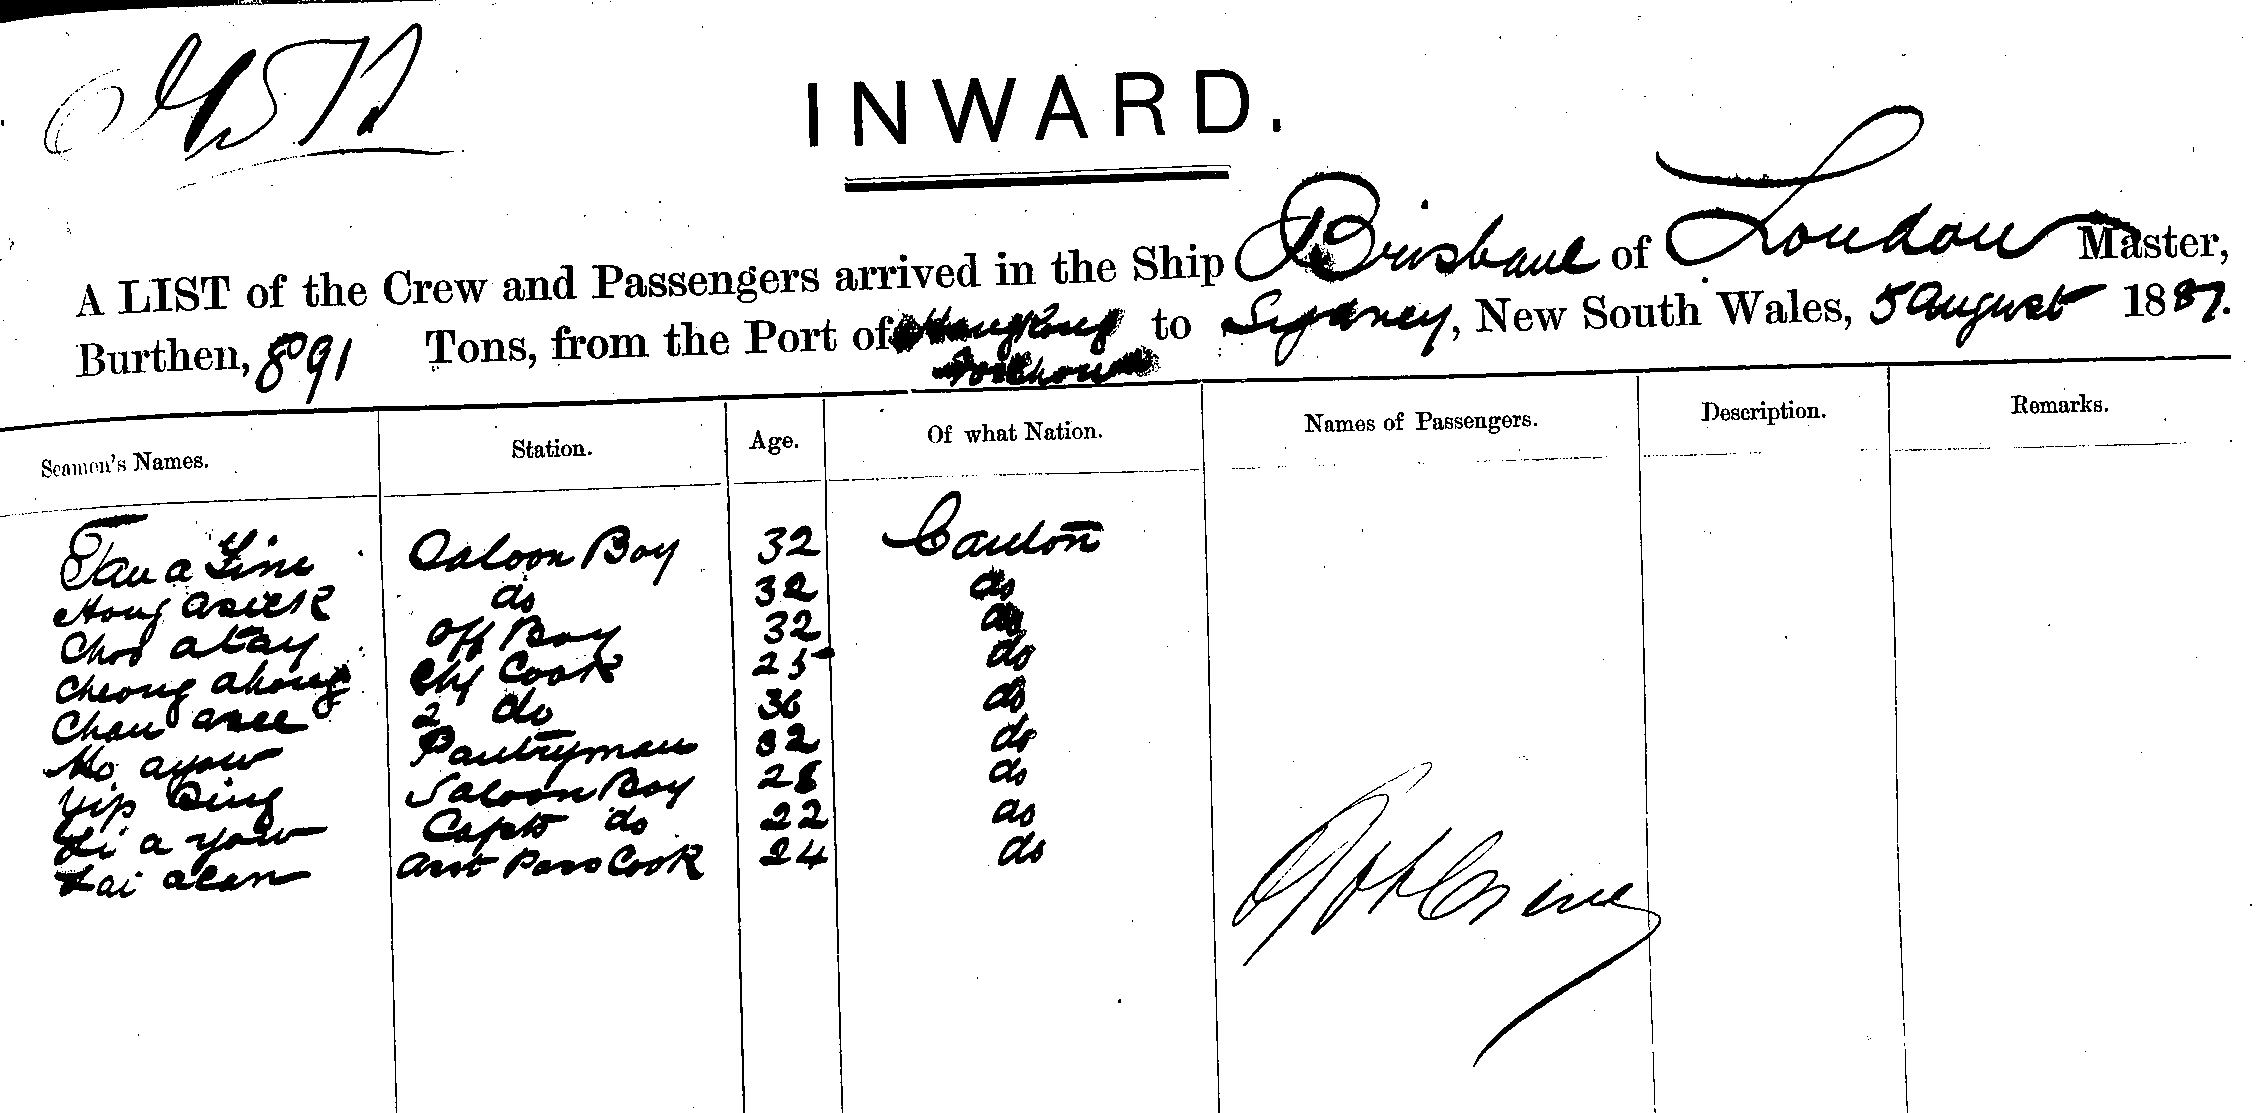 INWARD.
A LIST of the Crew and Passengers arrived in the Ship Brisbane of London Master,
Burthen, 891 Tons, from the Port of Hongkong to Sydney, New South Wales, 5 August 1887.
Foochow
Seamen's Names. Station. Age. Of what Nation. Names of Passengers. Description. Remarks.
Tau a Line Saloon Boy 32 Canton
Hong asick do 32 do
Choo atay Off Boy 32 do
Cheong ahong Chf Cook 25 do
Chau asee 2 do 36 do
Mo ayow Pantryman 32 do
Yip Sing Saloon Boy 28 do
Li a yow Capts do 22 do
Lai acan asst Pass Cook 24 do